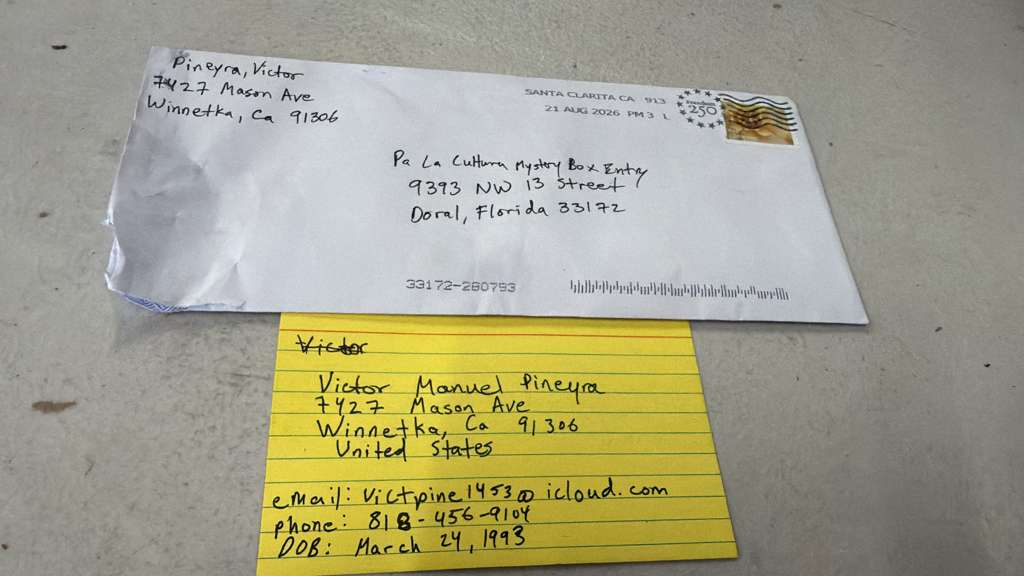 Pineyra, Victor
7427 Mason Ave
Winnetka, Ca 91306
SANTA CLARITA CA 913
21 AUG 2026 PM 3 L
Freedom
250
Pa La Cultura Mystery Box Entry
9393 NW 13 Street
Doral, Florida 33172
33172-280793
Victor
Victor Manuel Pineyra
7427 Mason Ave
Winnetka, Ca 91306
United States
email: Victpine1453@icloud.com
phone: 818-456-9104
DOB: March 24, 1993